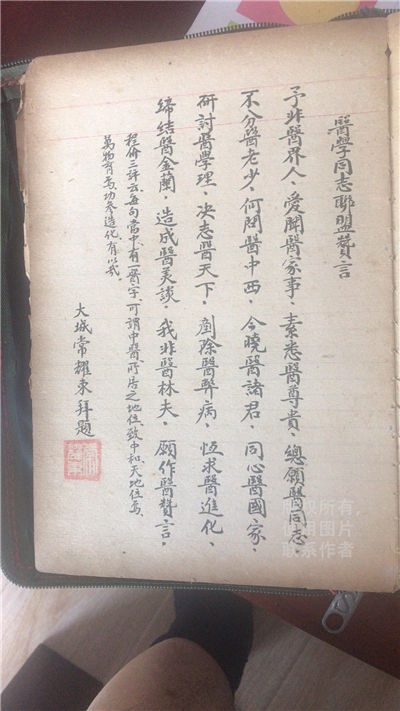 醫學同志聯盟贊言
予非醫界人、愛聞醫家事、素悉醫尊貴、總願醫同志、
不分醫老少、何問醫中西、今曉醫諸君、同心醫國家、
研討醫學理、决志醫天下、剷除醫弊病、恆求醫進化、
締結醫金蘭、造成醫美談、我非醫林夫、願作醫贊言、
程俯三評云、每句當中、有一醫字、可謂中醫所居之地位、致中和、天地位焉、
萬物育焉、功参造化、有以哉、
大城常耀東拜題
版权所有，
使用图片
联系作者